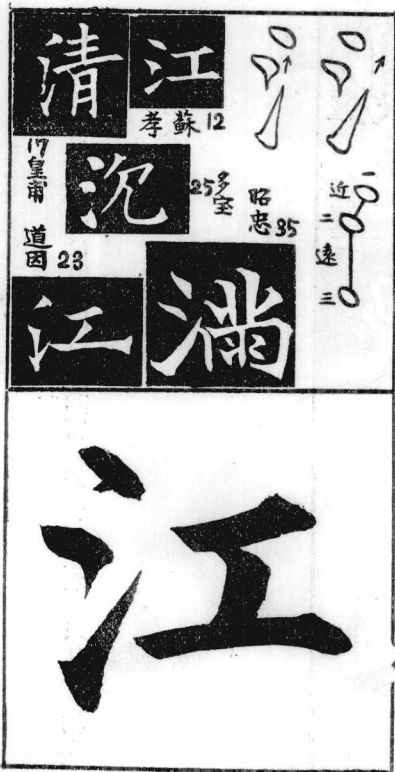 清
江
孝蘇12
17皇甫
沉
25多宝
昭忠35
道因23
江
滿
近
一
二
遠
三
江